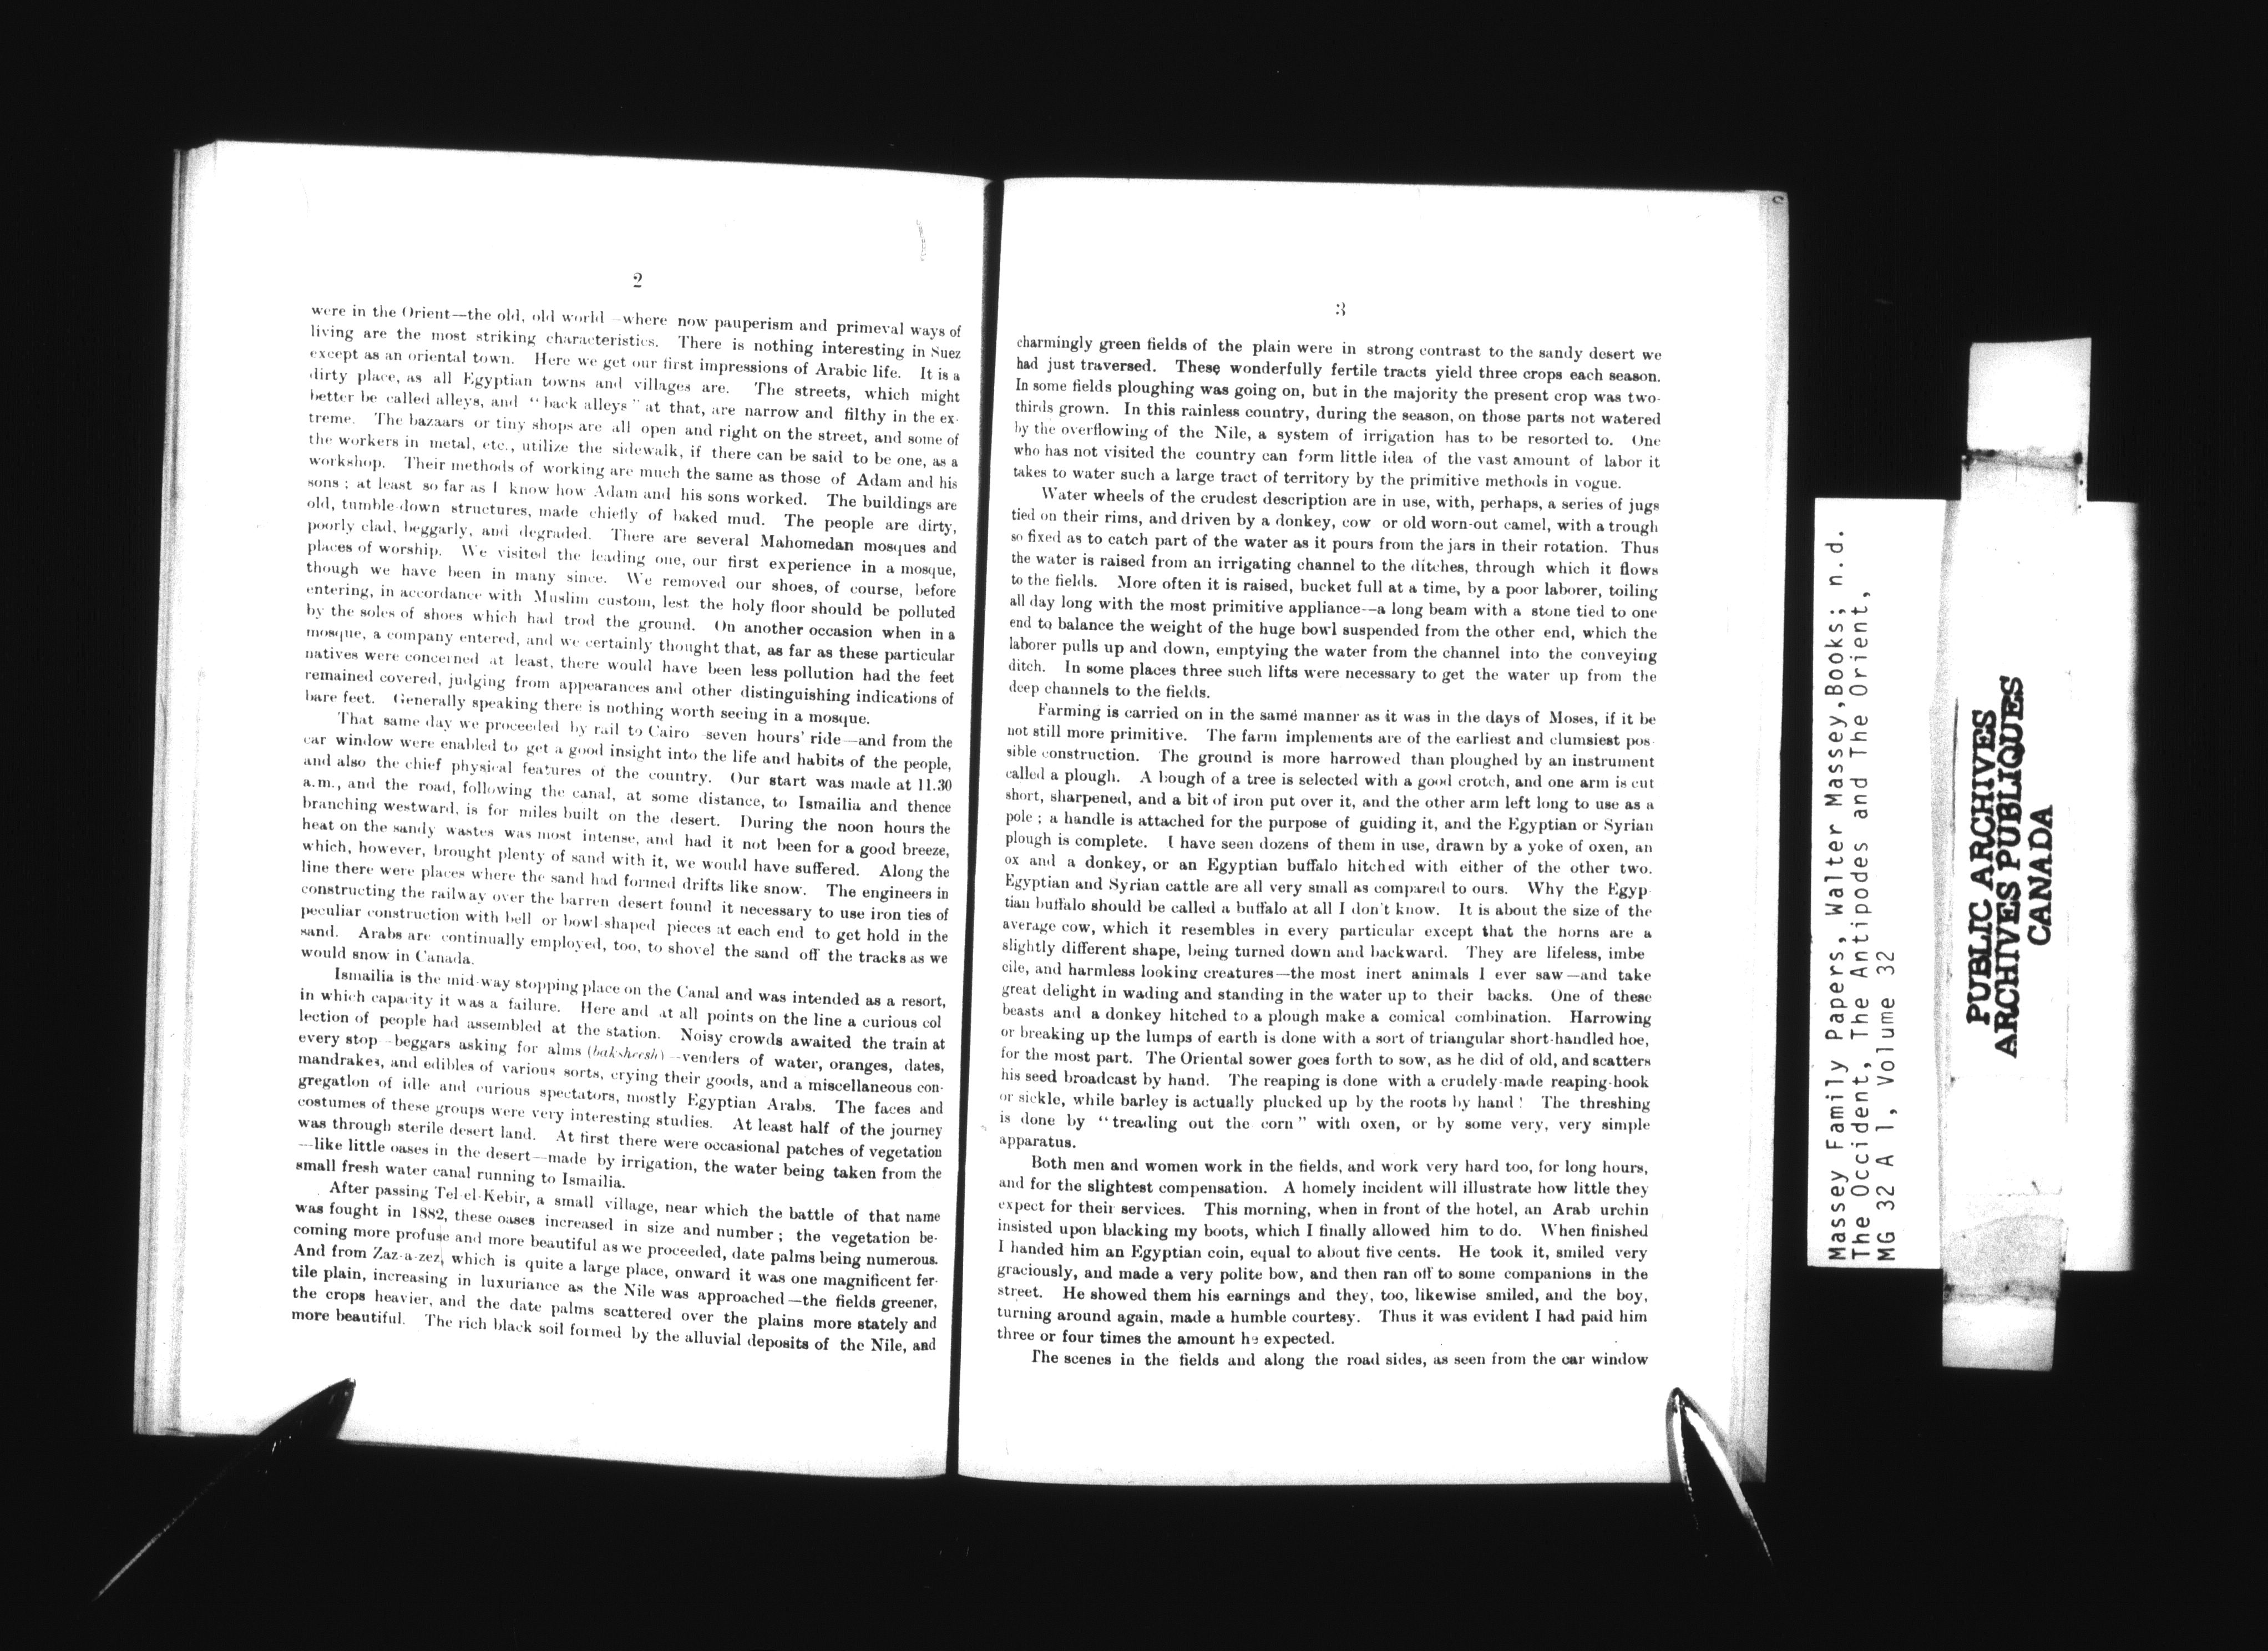 2
were in the Orient—the old, old world—where now pauperism and primeval ways of
living are the most striking characteristics. There is nothing interesting in Suez
except as an oriental town. Here we get our first impressions of Arabic life. It is a
dirty place, as all Egyptian towns and villages are. The streets, which might
better be called alleys, and "back alleys" at that, are narrow and filthy in the ex-
treme. The bazaars or tiny shops are all open and right on the street, and some of
the workers in metal, etc., utilize the sidewalk, if there can be said to be one, as a
workshop. Their methods of working are much the same as those of Adam and his
sons; at least so far as I know how Adam and his sons worked. The buildings are
old, tumble-down structures, made chiefly of baked mud. The people are dirty,
poorly clad, beggarly, and degraded. There are several Mahomedan mosques and
places of worship. We visited the leading one, our first experience in a mosque,
though we have been in many since. We removed our shoes, of course, before
entering, in accordance with Muslim custom, lest the holy floor should be polluted
by the soles of shoes which had trod the ground. On another occasion when in a
mosque, a company entered, and we certainly thought that, as far as these particular
natives were concerned at least, there would have been less pollution had the feet
remained covered, judging from appearances and other distinguishing indications of
bare feet. Generally speaking there is nothing worth seeing in a mosque.
That same day we proceeded by rail to Cairo—seven hours' ride—and from the
car window were enabled to get a good insight into the life and habits of the people,
and also the chief physical features of the country. Our start was made at 11.30
a.m., and the road, following the canal, at some distance, to Ismailia and thence
branching westward, is for miles built on the desert. During the noon hours the
heat on the sandy wastes was most intense, and had it not been for a good breeze,
which, however, brought plenty of sand with it, we would have suffered. Along the
line there were places where the sand had formed drifts like snow. The engineers in
constructing the railway over the barren desert found it necessary to use iron ties of
peculiar construction with bell or bowl-shaped pieces at each end to get hold in the
sand. Arabs are continually employed, too, to shovel the sand off the tracks as we
would snow in Canada.
Ismailia is the mid-way stopping place on the Canal and was intended as a resort,
in which capacity it was a failure. Here and at all points on the line a curious col
lection of people had assembled at the station. Noisy crowds awaited the train at
every stop—beggars asking for alms (baksheesh)—venders of water, oranges, dates,
mandrakes, and edibles of various sorts, crying their goods, and a miscellaneous con-
gregation of idle and curious spectators, mostly Egyptian Arabs. The faces and
costumes of these groups were very interesting studies. At least half of the journey
was through sterile desert land. At first there were occasional patches of vegetation
—like little oases in the desert—made by irrigation, the water being taken from the
small fresh water canal running to Ismailia.
After passing Tel-el-Kebir, a small village, near which the battle of that name
was fought in 1882, these oases increased in size and number; the vegetation be-
coming more profuse and more beautiful as we proceeded, date palms being numerous.
And from Zaz-a-zez, which is quite a large place, onward it was one magnificent fer-
tile plain, increasing in luxuriance as the Nile was approached—the fields greener,
the crops heavier, and the date palms scattered over the plains more stately and
more beautiful. The rich black soil formed by the alluvial deposits of the Nile, and
3
charmingly green fields of the plain were in strong contrast to the sandy desert we
had just traversed. These wonderfully fertile tracts yield three crops each season.
In some fields ploughing was going on, but in the majority the present crop was two-
thirds grown. In this rainless country, during the season, on those parts not watered
by the overflowing of the Nile, a system of irrigation has to be resorted to. One
who has not visited the country can form little idea of the vast amount of labor it
takes to water such a large tract of territory by the primitive methods in vogue.
Water wheels of the crudest description are in use, with, perhaps, a series of jugs
tied on their rims, and driven by a donkey, cow or old worn-out camel, with a trough
so fixed as to catch part of the water as it pours from the jars in their rotation. Thus
the water is raised from an irrigating channel to the ditches, through which it flows
to the fields. More often it is raised, bucket full at a time, by a poor laborer, toiling
all day long with the most primitive appliance—a long beam with a stone tied to one
end to balance the weight of the huge bowl suspended from the other end, which the
laborer pulls up and down, emptying the water from the channel into the conveying
ditch. In some places three such lifts were necessary to get the water up from the
deep channels to the fields.
Farming is carried on in the same manner as it was in the days of Moses, if it be
not still more primitive. The farm implements are of the earliest and clumsiest pos-
sible construction. The ground is more harrowed than ploughed by an instrument
called a plough. A bough of a tree is selected with a good crotch, and one arm is cut
short, sharpened, and a bit of iron put over it, and the other arm left long to use as a
pole; a handle is attached for the purpose of guiding it, and the Egyptian or Syrian
plough is complete. I have seen dozens of them in use, drawn by a yoke of oxen, an
ox and a donkey, or an Egyptian buffalo hitched with either of the other two.
Egyptian and Syrian cattle are all very small as compared to ours. Why the Egyp
tian buffalo should be called a buffalo at all I don't know. It is about the size of the
average cow, which it resembles in every particular except that the horns are a
slightly different shape, being turned down and backward. They are lifeless, imbe
cile, and harmless looking creatures—the most inert animals I ever saw—and take
great delight in wading and standing in the water up to their backs. One of these
beasts and a donkey hitched to a plough make a comical combination. Harrowing
or breaking up the lumps of earth is done with a sort of triangular short-handled hoe,
for the most part. The Oriental sower goes forth to sow, as he did of old, and scatters
his seed broadcast by hand. The reaping is done with a crudely-made reaping-hook
or sickle, while barley is actually plucked up by the roots by hand! The threshing
is done by "treading out the corn" with oxen, or by some very, very simple
apparatus.
Both men and women work in the fields, and work very hard too, for long hours,
and for the slightest compensation. A homely incident will illustrate how little they
expect for their services. This morning, when in front of the hotel, an Arab urchin
insisted upon blacking my boots, which I finally allowed him to do. When finished
I handed him an Egyptian coin, equal to about five cents. He took it, smiled very
graciously, and made a very polite bow, and then ran off to some companions in the
street. He showed them his earnings and they, too, likewise smiled, and the boy,
turning around again, made a humble courtesy. Thus it was evident I had paid him
three or four times the amount he expected.
The scenes in the fields and along the road sides, as seen from the car window
Massey Family Papers, Walter Massey, Books; n.d.
The Occident, The Antipodes and The Orient,
MG 32 A 1, Volume 32
PUBLIC ARCHIVES
ARCHIVES PUBLIQUES
CANADA